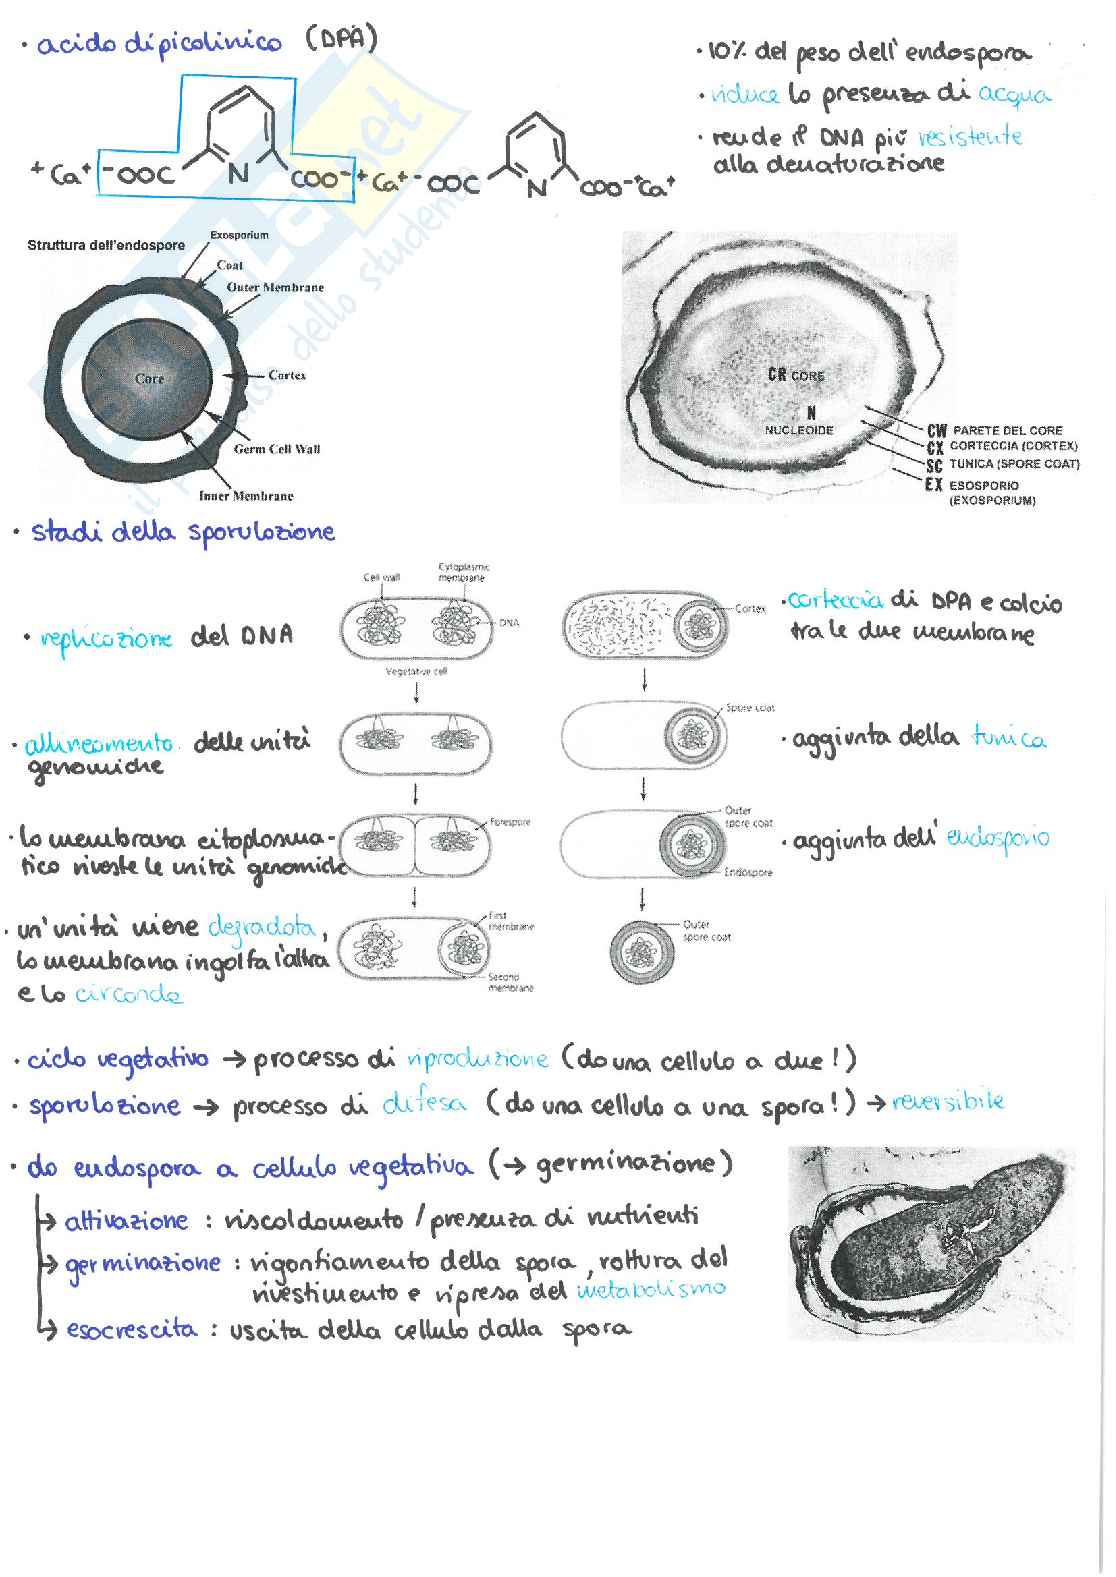 · acido dipicolinico (DPA)
· 10% del peso dell'endospora
· riduce la presenza di acqua
· rende il DNA più resistente
alla denaturazione
+Ca+ -OOC N COO- +Ca+ -OOC N COO- +Ca+
Struttura dell'endospore
Exosporium
Coat
Outer Membrane
Core
Cortex
Germ Cell Wall
Inner Membrane
CR CORE
N
NUCLEOIDE
CW PARETE DEL CORE
CX CORTECCIA (CORTEX)
SC TUNICA (SPORE COAT)
EX ESOSPORIO
(EXOSPORIUM)
il paradiso dello studente
· stadi della sporulazione
· replicazione del DNA
Cell wall
Cytoplasmic
membrane
DNA
Vegetative cell
Cortex
· corteccia di DPA e calcio
tra le due membrane
· allineamento delle unità
genomiche
Spore coat
· aggiunta della tunica
· la membrana citoplasma-
tica riveste le unità genomiche
Forespore
Outer
spore coat
Endospore
· aggiunta dell'endosporio
· un'unità viene degradata,
la membrana ingolfa l'altra
e la circonda
First
membrane
Second
membrane
Outer
spore coat
· ciclo vegetativo → processo di riproduzione (da una cellula a due!)
· sporulazione → processo di difesa (da una cellula a una spora!) → reversibile
· da endospora a cellula vegetativa (→ germinazione)
→ attivazione : riscaldamento / presenza di nutrienti
→ germinazione : rigonfiamento della spora, rottura del
rivestimento e ripresa del metabolismo
→ esocrescita : uscita della cellula dalla spora